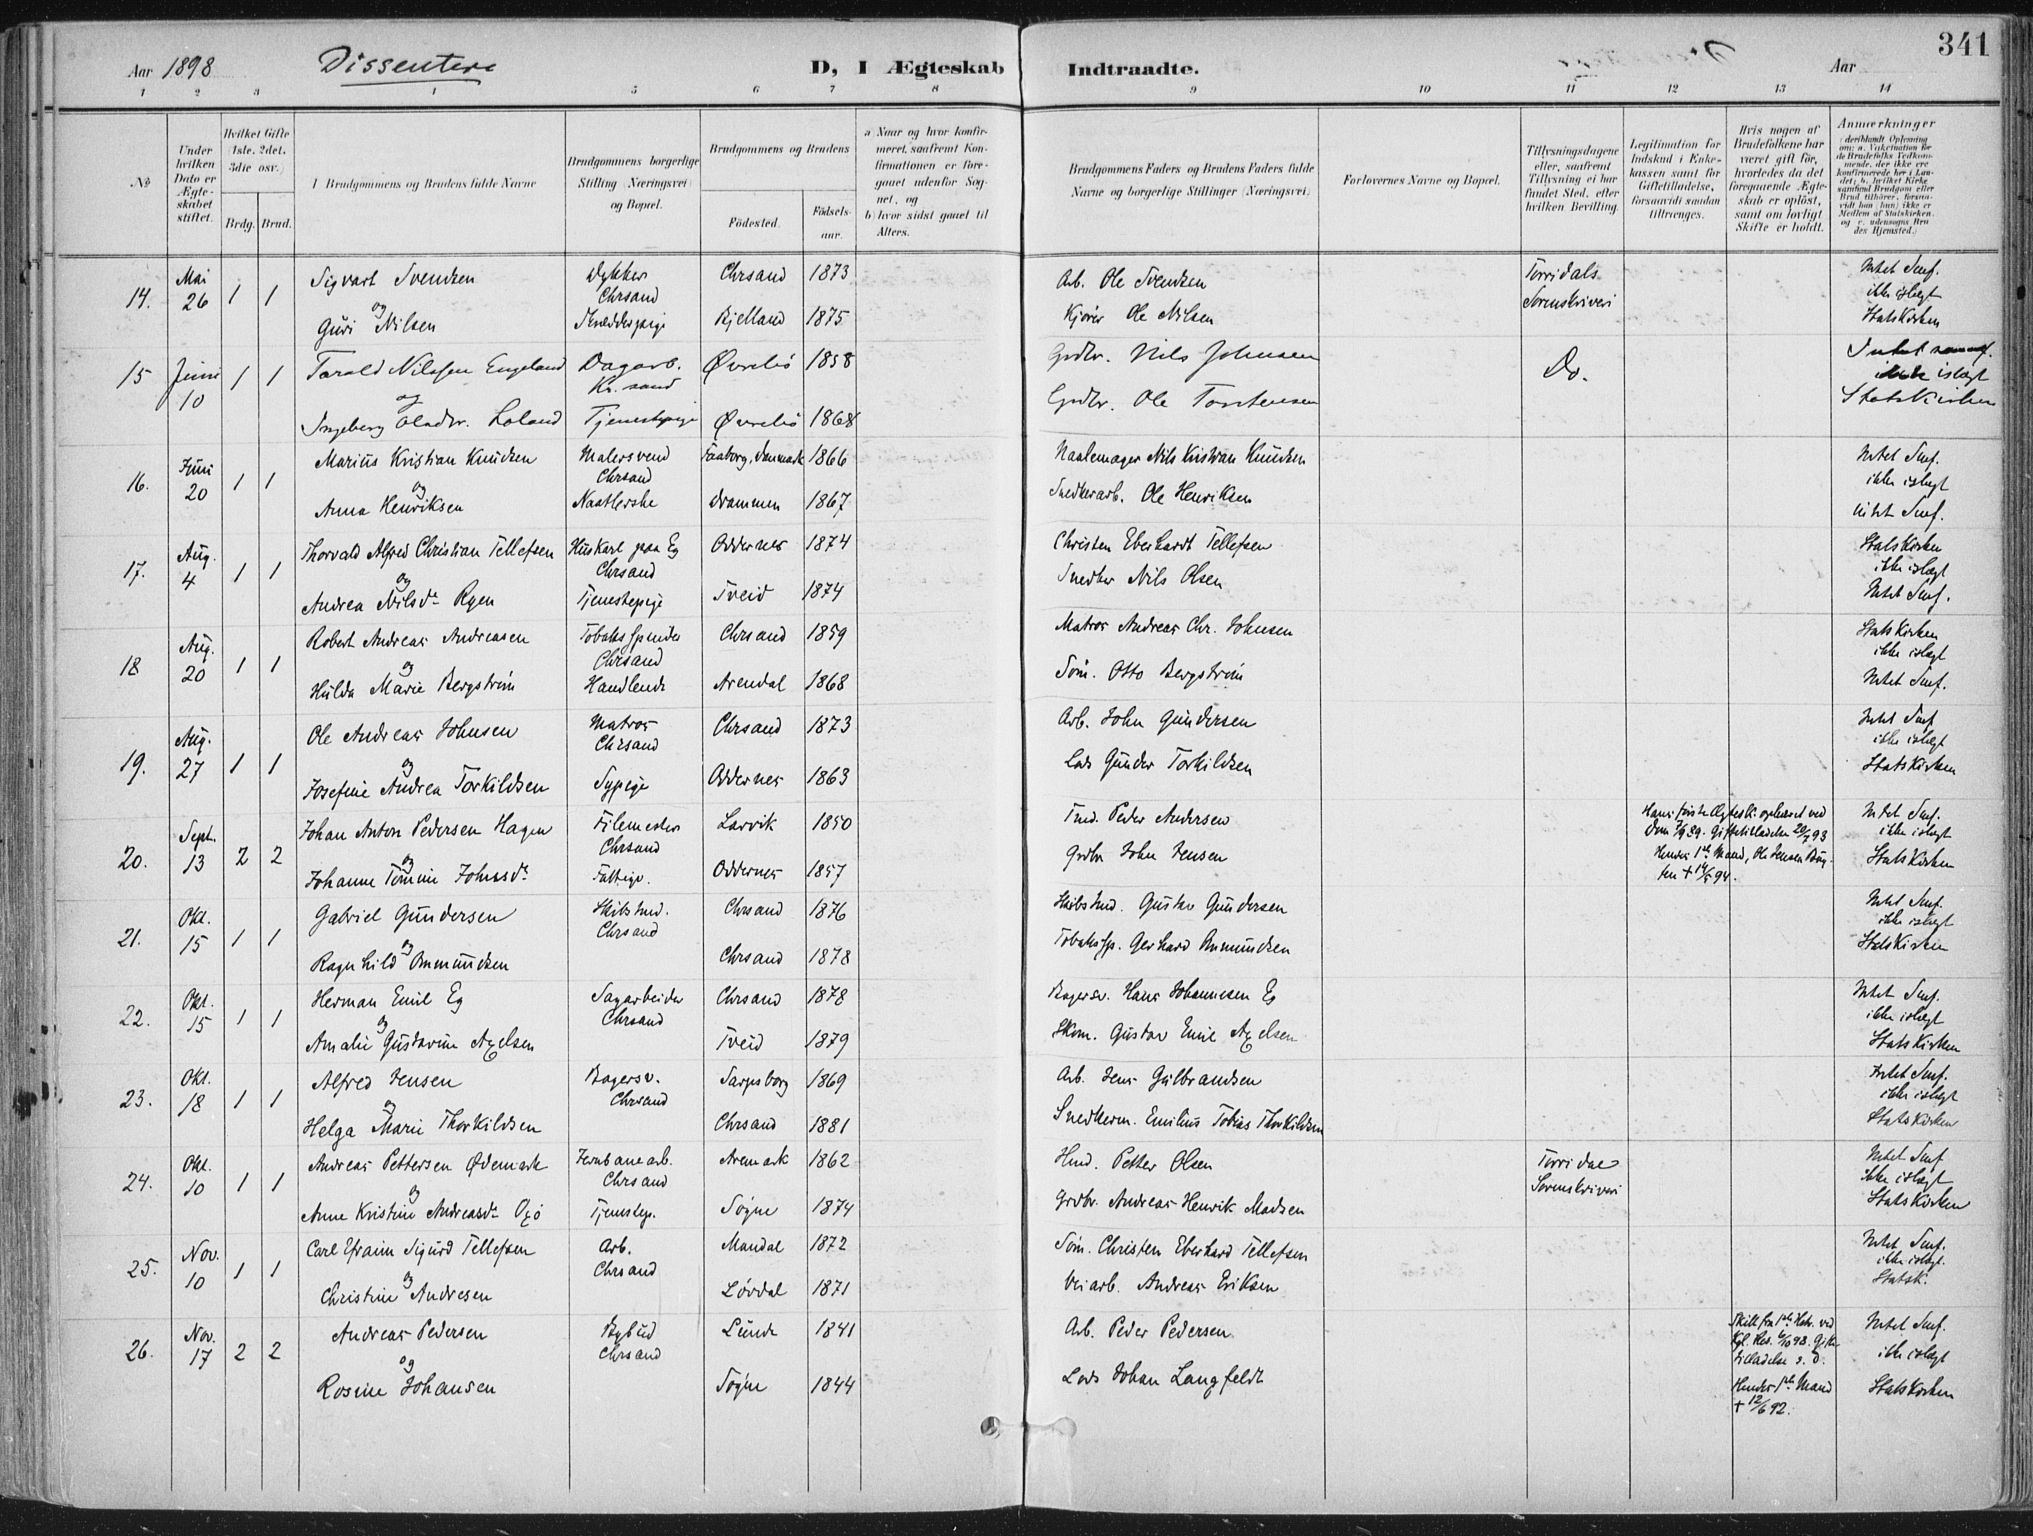 341
Aar 1898 Dissentere D, I Ægteskab Indtraadte. Aar
1 2 3 4 5 6 7 8 9 10 11 12 13 14
No
Under hvilken Dato er Ægteskabet stiftet.
Hvilket Gifte (1ste, 2det, 3die osv.)
Brdg. Brud.
1 Brudgommens og Brudens fulde Navne
Brudgommens borgerlige Stilling (Næringsvei) og Bopæl.
Brudgommens og Brudens
Födested.
Födsels-aar.
a Naar og hvor konfirmeret, saafremt Konfirmationen er foregaaet udenfor Sognet, og
b hvor sidst gaaet til Alters.
Brudgommens Faders og Brudens Faders fulde Navne og borgerlige Stillinger (Næringsvei).
Forlovernes Navne og Bopæl.
Tillysningsdagene eller, saafremt Tillysning ei har fundet Sted, efter hvilken Bevilling.
Legitimation for Indskud i Enkekassen samt for Giftetilladelse, forsaavidt saadan tiltrænges.
Hvis nogen af Brudefolkene har været gift för, hvorledes da det foregaaende Ægteskab er oplöst, samt om lovligt Skifte er holdt.
Anmærkninger
14. Mai 26 1 1 Sigvart Svendsen Dykker Chrsand Chrsand 1873 Arb. Ole Svendsen Torridals Sorenskriveri Intet Smf.
ikke islægt
og Guri Nilsen Bjelland 1875 Kjører Ole Nilsen Statskirken
15 Juni 10 1 1 Torald Nilssen Engeland Dagarb. Kr.sand Øvrebö 1858 Grdbr. Nils Johnsen Do. Intet
islægt
og Ingeborg Olsdtr. Loland Tjenestepige Øvrebö 1868 Grdbr. Ole Torstensen Statskirken
16. Juni 20 1 1 Marius Kristian Knudsen Malersvend Chrsand Faaborg, Danmark 1866 Naalemager Nils Kristian Knudsen Intet Smf.
ikke islægt
og Anna Henriksen Naatlerske Drammen 1867 Snedkerarb. Ole Henriksen intet Smf.
17. Aug. 4 1 1 Thorvald Alfred Christian Tellefsen Huskarl paa Eg Chrsand Oddernes 1874 Christen Eberhardt Tellefsen Statskirken
ikke islægt
og Andrea Nilsdr Ryen Tjenestepige Tveid 1874 Snedker Nils Olsen Intet Smf.
18 Aug. 20 1 1 Robert Andreas Andreasen Tobaksspinder Chrsand Chrsand 1859 Matros Andreas Chr. Johnsen Statskirken
ikke islægt
og Hulda Marie Bergström Handlende Arendal 1868 Söm. Otto Bergström Intet Smf.
19. Aug. 27 1 1 Ole Andreas Johnsen Matros Chrsand Chrsand 1873 Arb. John Gundersen Intet Smf
ikke islægt
og Josefine Andrea Torkildsen Sypige Oddernes 1863 Lods Gunder Torkildsen Statskirken
20. Sept. 13 2 2 Johan Anton Pedersen Hagen Filemester Chrsand Larvik 1850 Peder Andersen Hans første Ægtesk. ophævet ved Dom 7/9 89. Giftetilladelse 20/7 93 Intet Smf.
ikke islægt
og Johanne Tomine Johnsdr Oddernes 1857 Grdbr John Jensen Hendes 1ste Mand, Ole Jensen + 14/5 94. Statskirken
21. Okt. 15 1 1 Gabriel Gundersen Skibstmd. Chrsand Chrsand 1876 Skibstmd. Gustav Gundersen Intet Smf.
ikke islægt
og Ragnhild Ommundsen Chrsand 1878 Tobakssp. Gerhard Ommundsen Statskirken
22. Okt. 15 1 1 Herman Emil Eg Sagarbeider Chrsand Chrsand 1878 Bagersv. Hans Johannesen Eg Intet Smf.
ikke islægt
og Amalie Gustavine Axelsen Tveid 1879 Skom. Gustav Emil Axelsen Statskirken
23. Okt. 18 1 1 Alfred Jensen Bagersv. Chrsand Sarpsborg 1869 Arb. Jens Gulbrandsen Intet Smf.
ikke islægt
og Helga Marie Thorkildsen Chrsand 1881 Snedkerm. Emilius Tobias Thorkildsen Statskirken
24. Okt. 10 1 1 Andreas Pettersen Ødemark Jernbanearb. Chrsand Aremark 1862 Hmd. Petter Olsen Torridal Sorenskriveri Intet Smf
ikke islægt
og Anne Kristine Andreasdr Oxö Tjenestep. Søgne 1874 Grdbr. Andreas Henrik Madsen Statskirken
25. Nov. 10 1 1 Carl Efraim Sigurd Tellefsen Arb. Chrsand Mandal 1872 Söm. Christen Eberhard Tellefsen Intet Smf.
ikke islægt.
og Christine Andresen 1871 Veiarb. Andreas Eriksen Statsk.
26. Nov. 17 2 2 Andreas Pedersen Bybud Chrsand Lunde 1841 Arb. Peder Pedersen Skilt fra 1ste Hstr. ved Kgl. Res. 6/10 98. Giftetilladelse s. d. Intet Smf.
ikke islægt
og Rosine Johansen Søgne 1844 Lods Johan Langfeldt Hendes 1ste Mand + 12/6 92. Statskirken